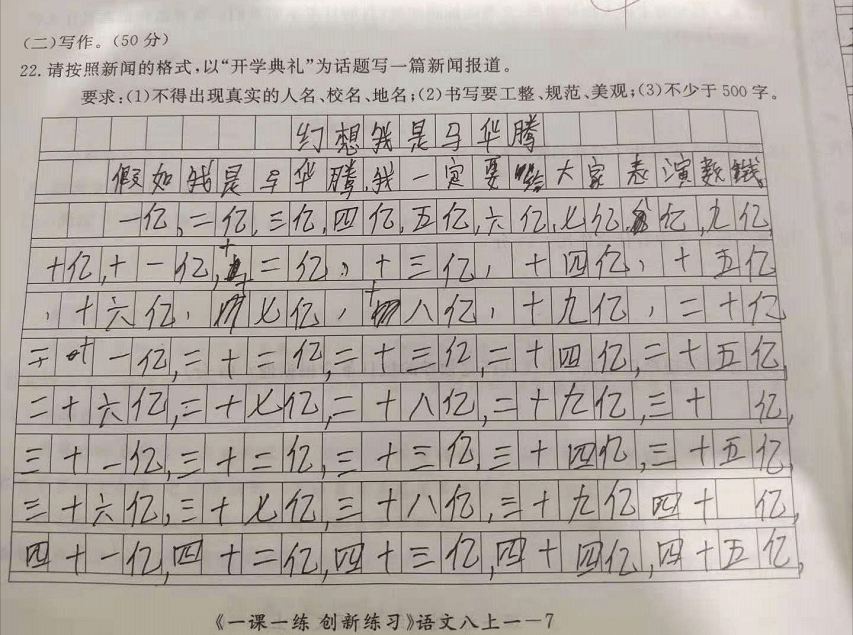 (二)写作。(50分)
22.请按照新闻的格式,以“开学典礼”为话题写一篇新闻报道。
要求:(1)不得出现真实的人名、校名、地名;(2)书写要工整、规范、美观;(3)不少于500字。
幻想我是马华腾
假如我是马华腾,我一定要给大家表演数钱。
一亿,二亿,三亿,四亿,五亿,六亿,七亿,亿,九亿,
十亿,十一亿,十二亿,十三亿,十四亿,十五亿
,十六亿,十七亿,十八亿,十九亿,二十亿
二十一亿,二十二亿,二十三亿,二十四亿,二十五亿,
二十六亿,二十七亿,二十八亿,二十九亿,三十亿,
三十一亿,三十二亿,三十三亿,三十四亿,三十五亿,
三十六亿,三十七亿,三十八亿,三十九亿四十亿,
四十一亿,四十二亿,四十三亿,四十四亿,四十五亿,
《一课一练 创新练习》语文八上一-7